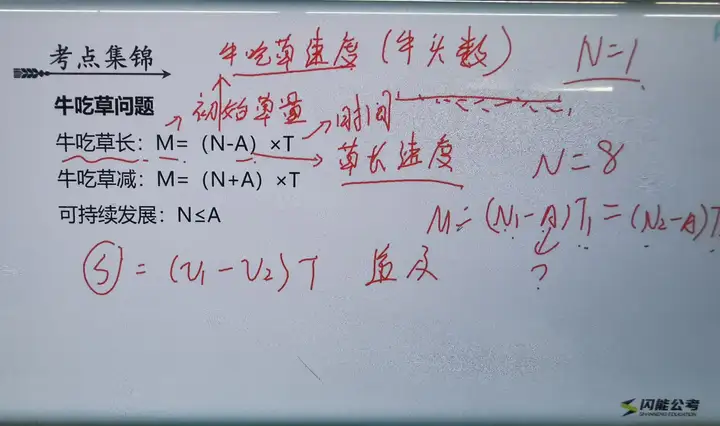 考点集锦
牛吃草速度(牛头数)
N=1
牛吃草问题
初始草量
牛吃草长：M=（N-A）×T
时间
草长速度
牛吃草减：M=（N+A）×T
N=8
可持续发展：N≤A
M=(N₁-A)T₁=(N₂-A)T
?
S=(v₁-v₂)T 追及
闪能公考
SHANNENG EDUCATION